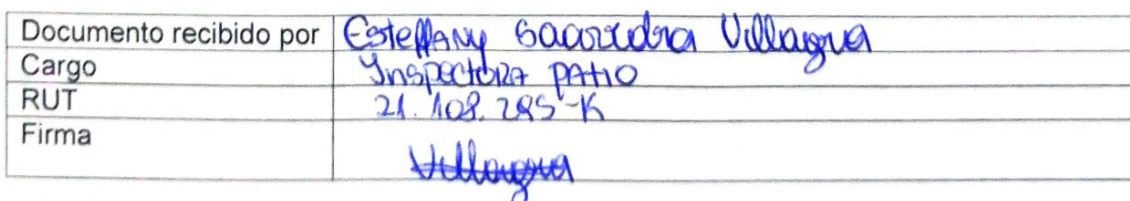 Documento recibido por Esteffany Saavedra Villagra
Cargo Inspectora PATIO
RUT 21.108.295-K
Firma Villagra